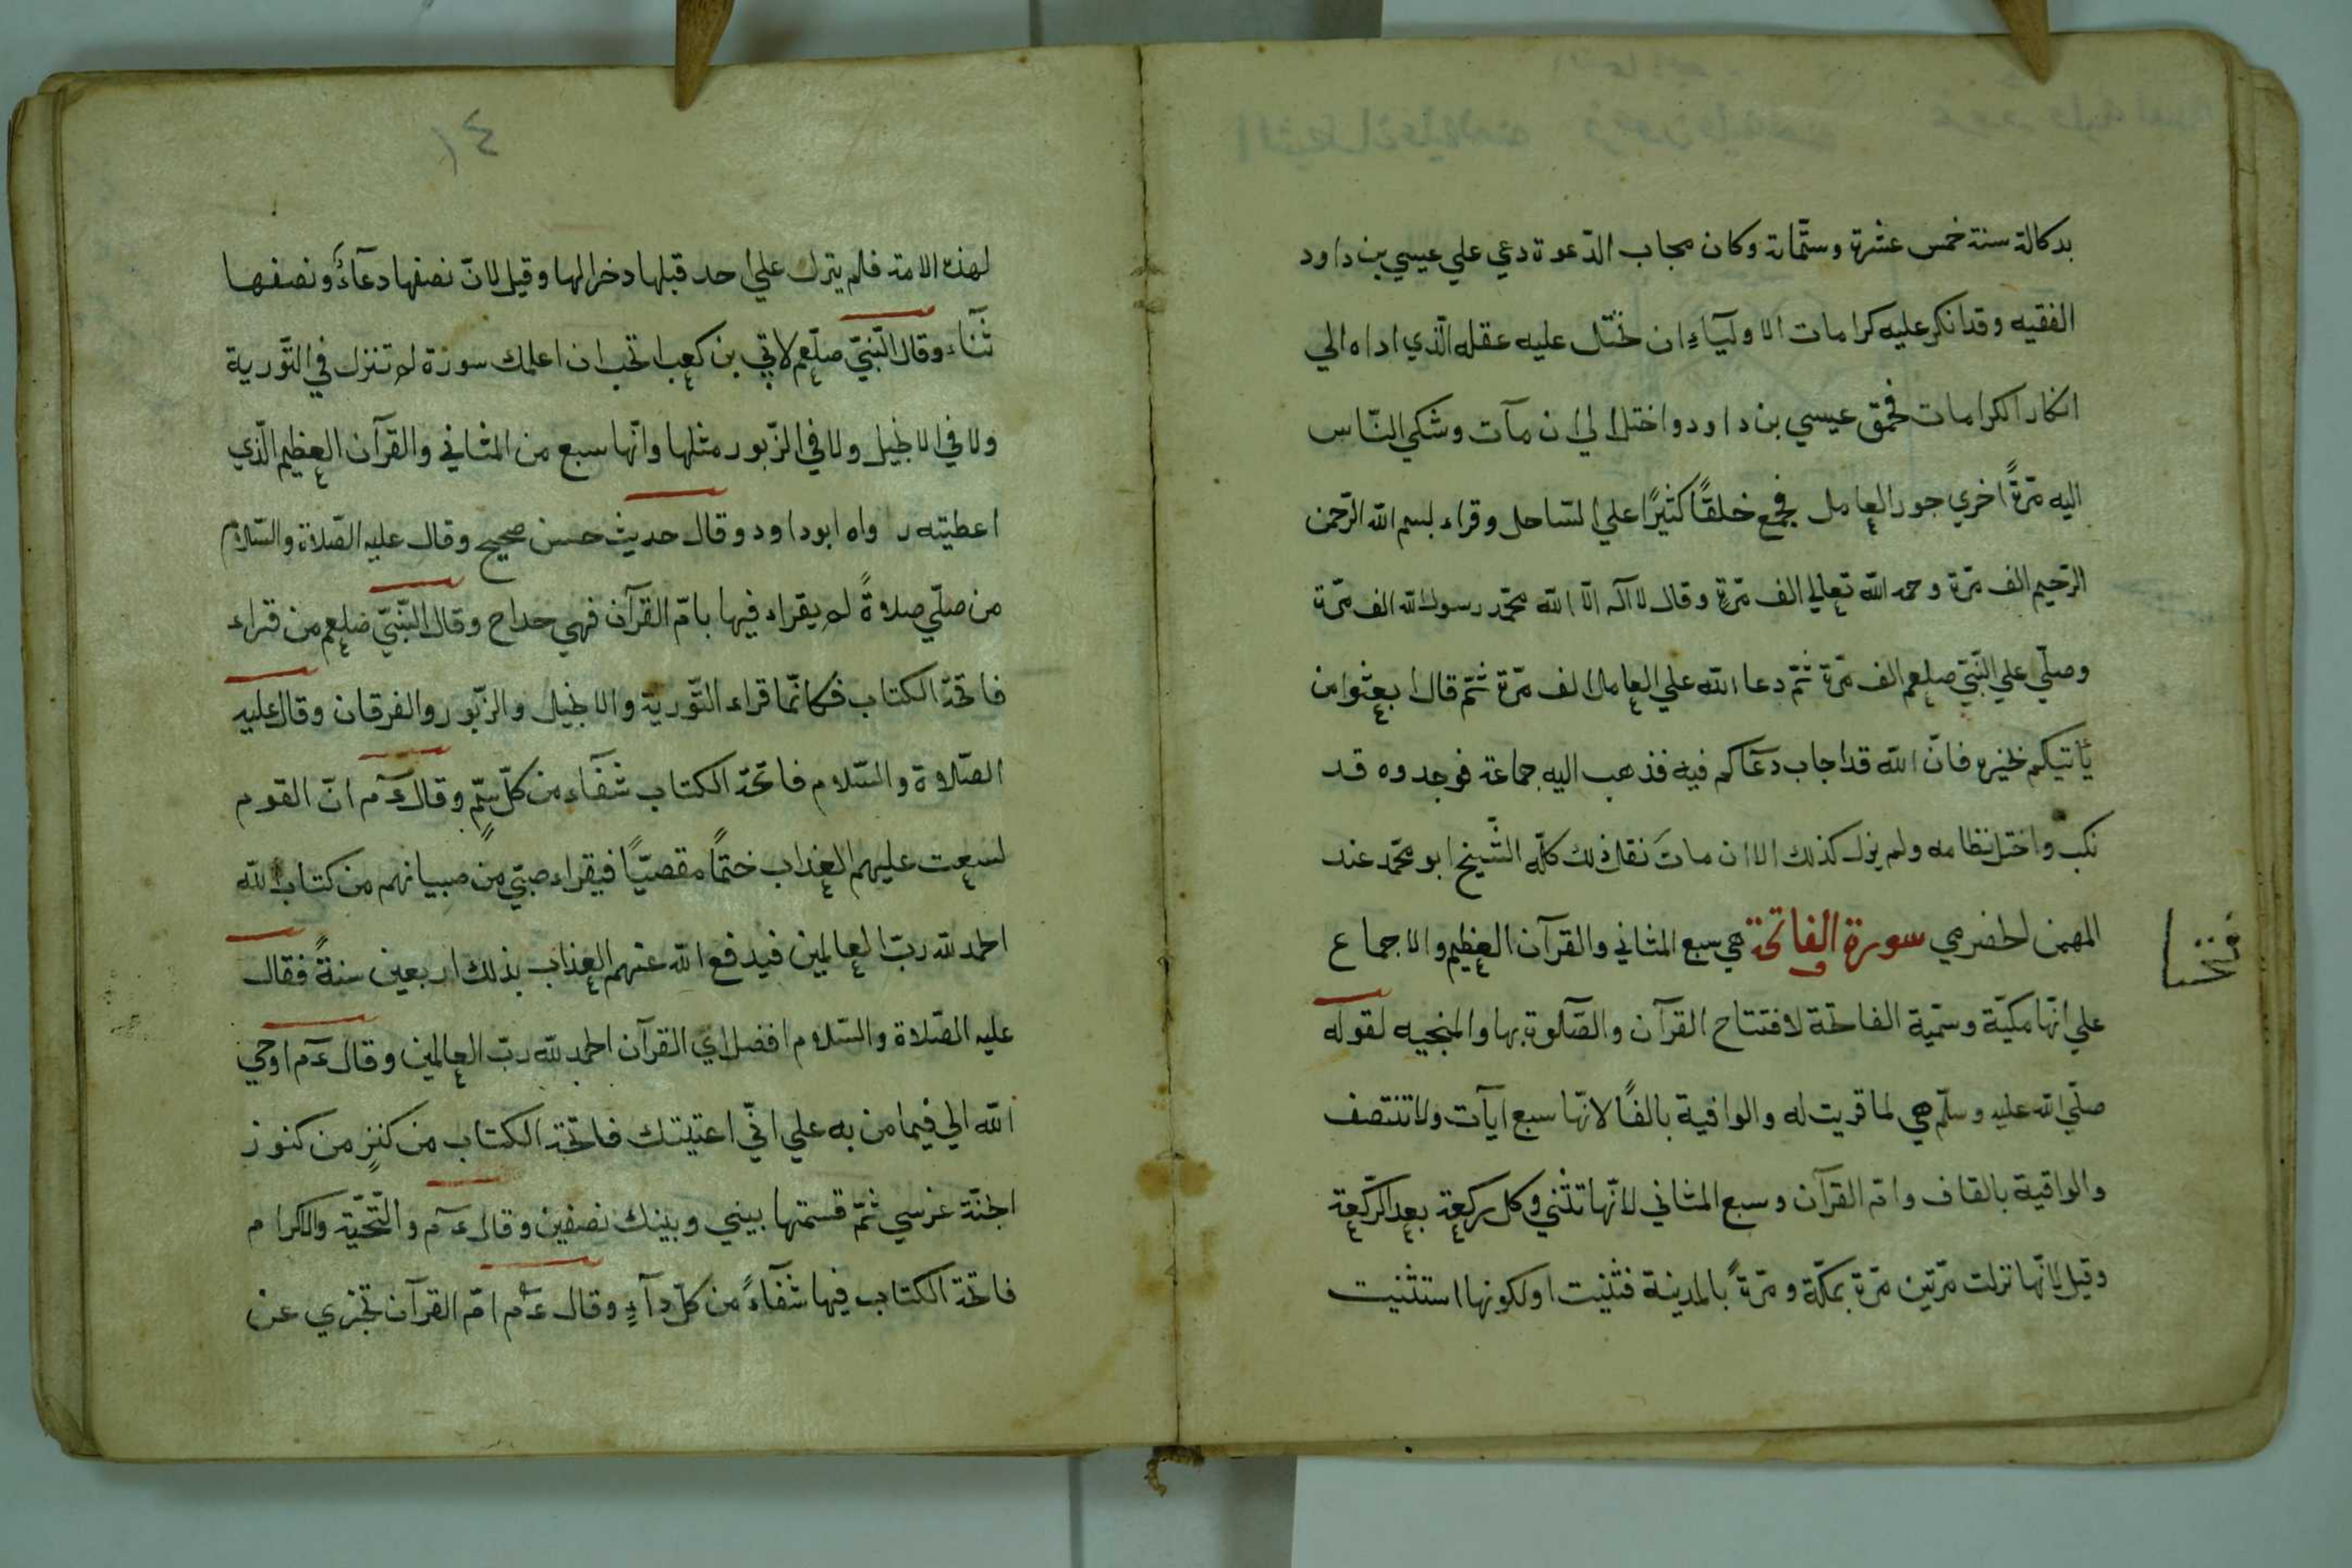 بدكالة سنة خمس عشرة وستّماة وكان مجاب الدّعوة دعي علي عيسي بن داود
الفقيه وقد انكر عليه كرامات الاوليآءِ ان عليه عقله الّذي اداه الي
انكار الكرامات فحمق عيسي بن داود واختل الي ان مآت وشكي النّاس
اليه مرّةً اخري جور العامل فجمع خلقًا كثيرًا علي السّاحل وقراء بسم الله الرّحمن
الرّحيم الف مرّة وحمد الله تعالي الف مرّةٍ وقال لا آله الّا الله محمّد رسول الله الف مرّة
وصلّي علي النّبيّ صلعم الف مرّة ثمّ دعا الله علي العامل الف مرّة ثمّ قال ابعثوا من
يأتيكم بخبره فانّ الله قد اجاب دعآكم فيه فذهب اليه جماعة فوجدوه قد
نكب واختل نظامه ولم يزل كذلك الا ان ماتَ نقل ذلك كلّه الشّيخ ابو محمّد عند
المهمن الحضرمي سورة الفاتحة هي سبع المثاني والقرآن العظيم والاجماع
علي انّها مكيّة وسمّية الفاتحة لافتتاح القرآن والصّلوة بها والمنجيه لقوله
صلّي الله عليه وسلّم هي لما قريت له والوافية بالفًا لانّها سبع ايآت ولا تنتصف
والواقية بالقاف وامّ القرآن وسبع المثاني لانّها تثني وكل ركعة بعد الرّكعة
وقيل لانّها نزلت مرّتين مرّة بمكّة ومرّةً بالمدينة فثنيت او لكونها استثنيت
١٤
لهذه الامة فلم ينزل علي احد قبلها دخرا لها وقيل لانّ نصفها دعآءٌ ونصفها
ثنآء وقال النّبيّ صلّعم لابي بن كعب اتحب ان اعلمك سورة لم تنزل في التّورية
ولا في الانجيل ولا في الزّبور مثلها وانّها سبع من المثاني والقرآن العظيم الّذي
اعطيته رواه ابو داود وقال حديث حسن صحيح وقال عليه الصّلاة والسّلام
من صلّي صلاةً لم يقراء فيها بامّ القرآن فهي خداح وقال النّبيّ صلعم من قراء
فاتحة الكتاب فكانّما قراء التّورية والانجيل والزّبور والفرقان وقال عليه
الصّلاوة والسّلام فاتحة الكتاب شفآء من كلّ سمٍّ وقال عم انّ القوم
لسعت عليهم العذاب ختمًا مقصيّيًا فيقراء صبيّ من صبيانهم من كتاب الله
الحمد لله ربّ العالمين فيدفع الله عنهم العذاب بذلك اربعين سنةً فقال
عليه الصّلاة والسّلام افضل اي القرآن الحمد لله ربّ العالمين وقال عم اوحي
الله الي فيما من به علي انّي اعتيتك فاتحة الكتاب من كنزٍ من كنوز
الجنّة عرسي ثمّ قسمتها بيني وبينك نصفين وقال عم والتّحيّة والاكرام
فاتحة الكتاب فيها شفآءً من كلّ دآءٍ وقال عم امّ القرآن تجزي عن